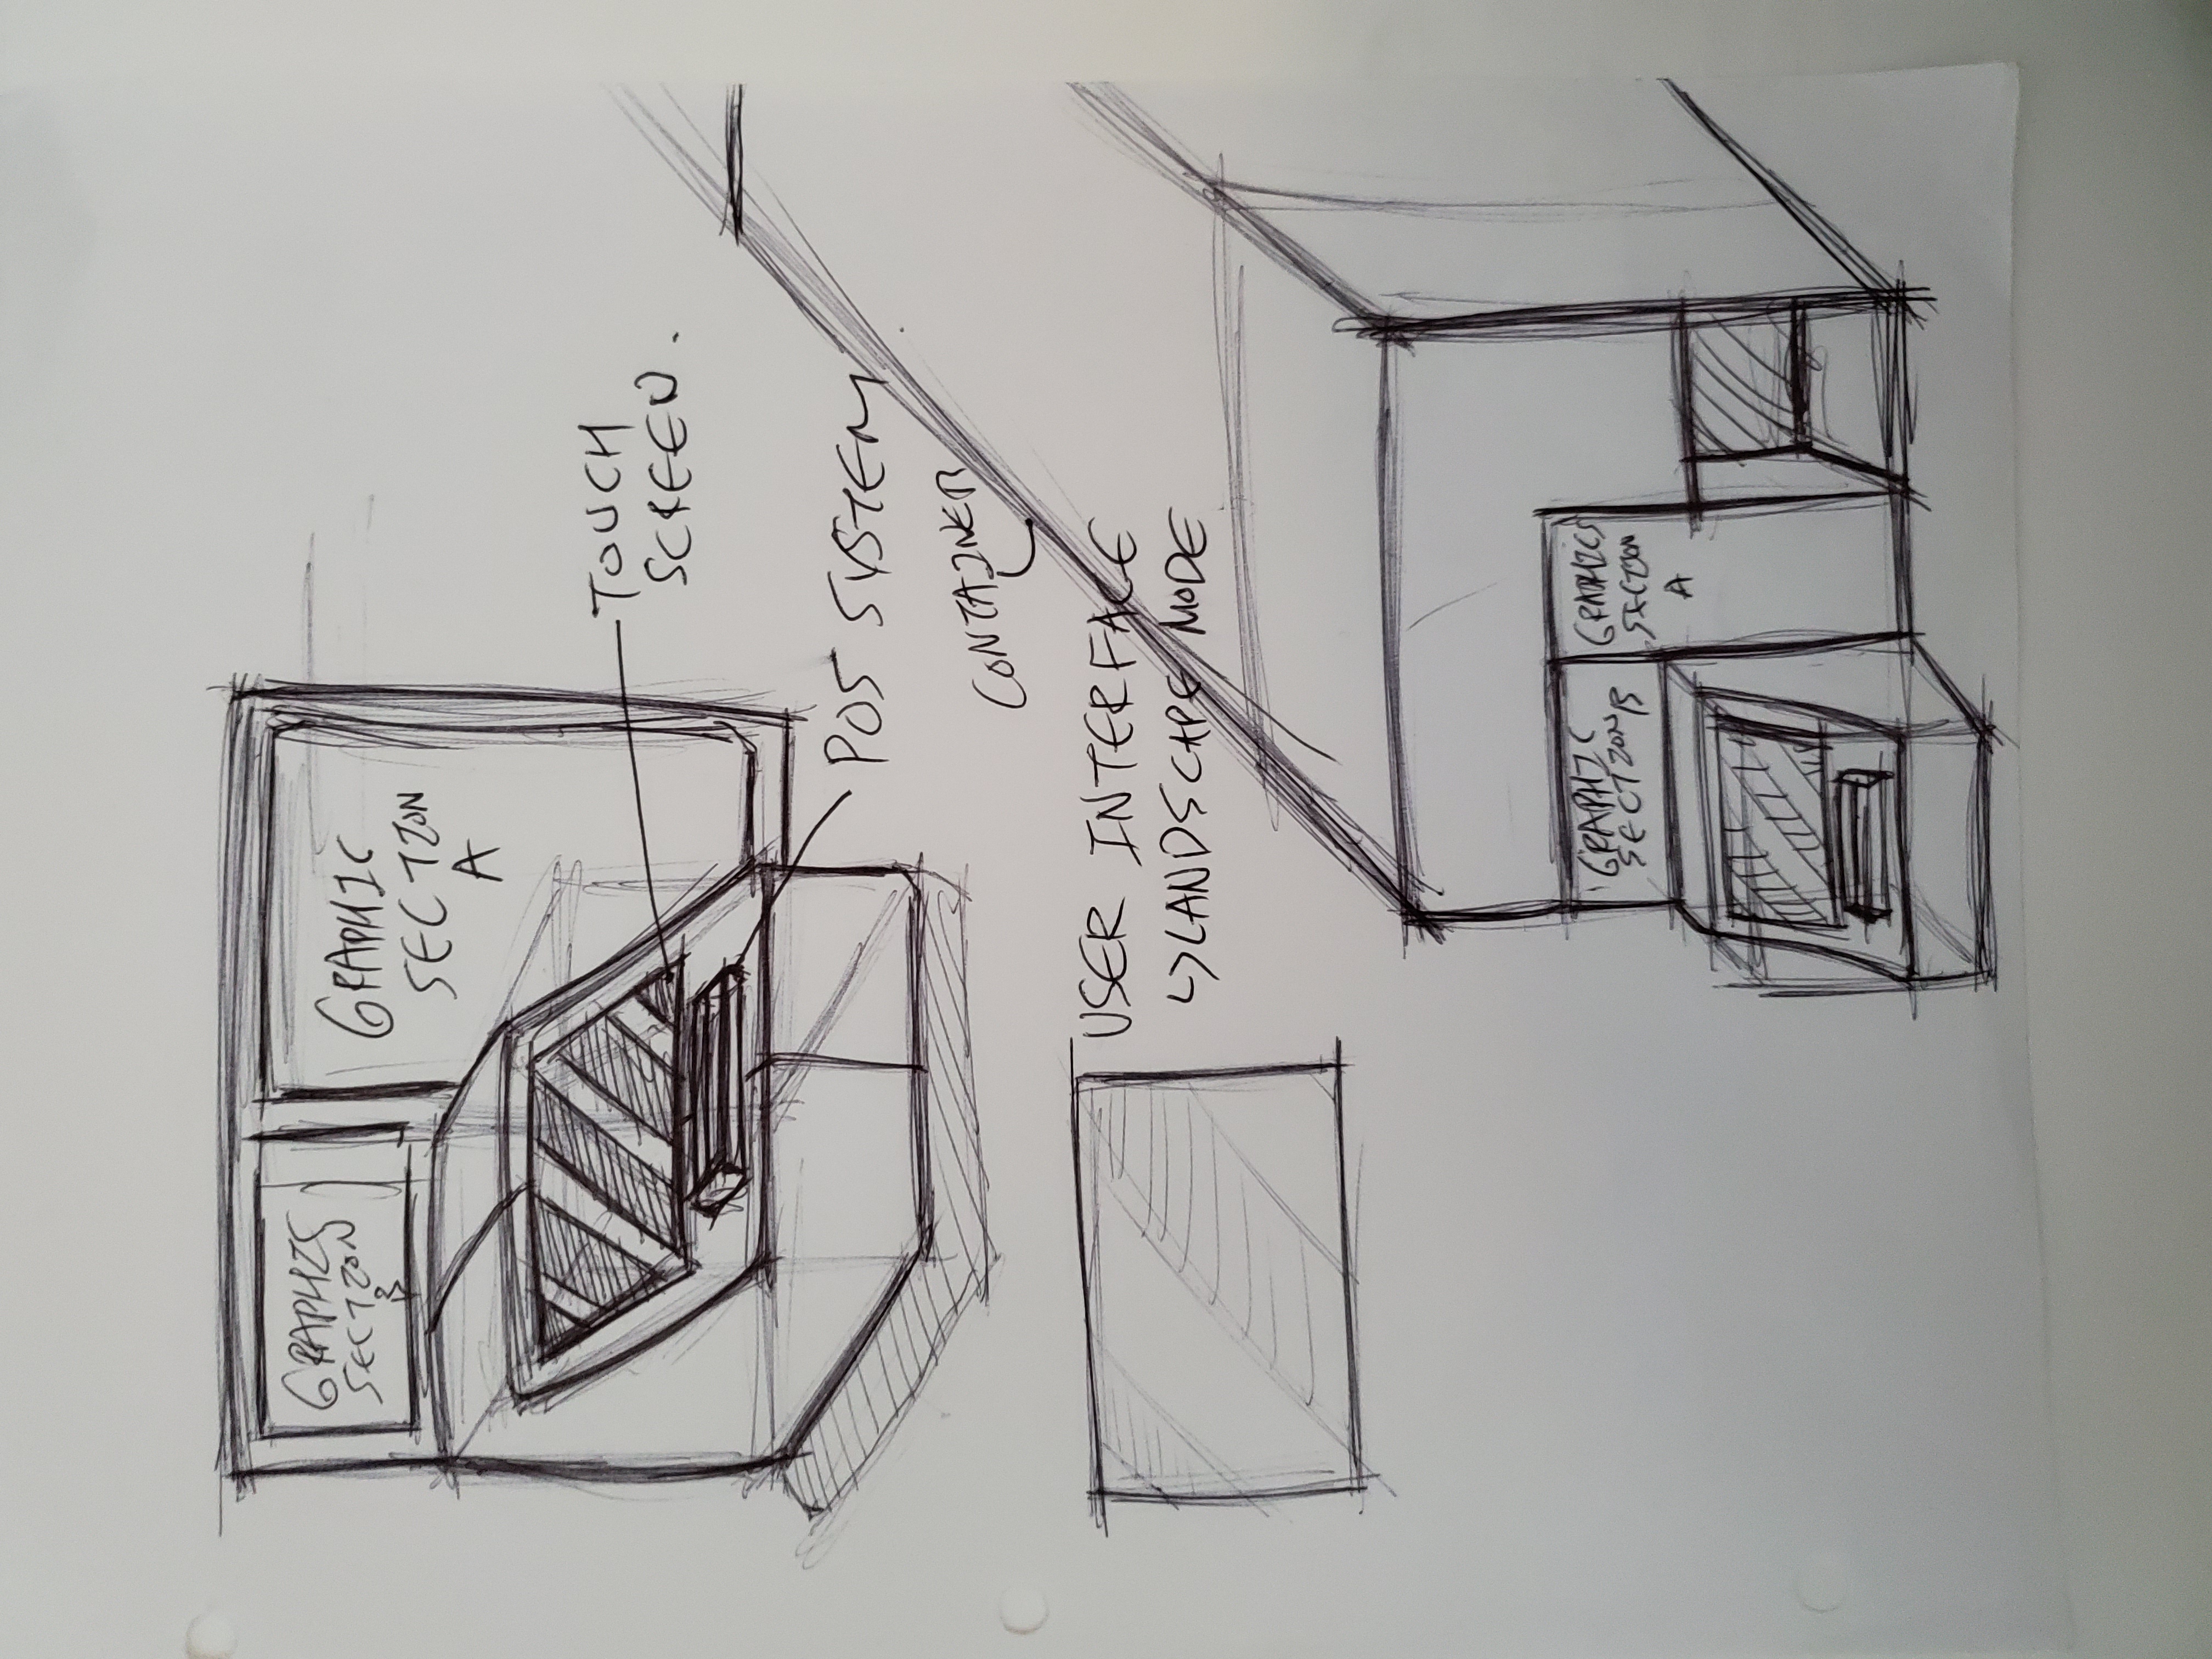 GRAPHICS
SECTION
B
GRAPHIC
SECTION
A
TOUCH
SCREEN.
POS SYSTEM
CONTAINER
USER INTERFACE
↳LANDSCAPE MODE
GRAPHIC
SECTION B
GRAPHICS
SECTION
A